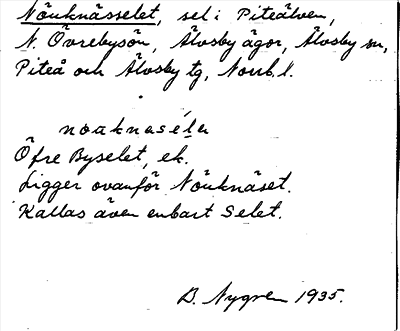 Nöuknässelet, sel i Piteälven,
N. Övrebysön, Älvsby ägor, Älvsby sn,
Piteå och Älvsby tg, Norrb. l.
nöaknasélə
Öfre Byselet, ek.
Ligger ovanför Nöuknäset.
Kallas även enbart Selet.
B. Nygren 1935.